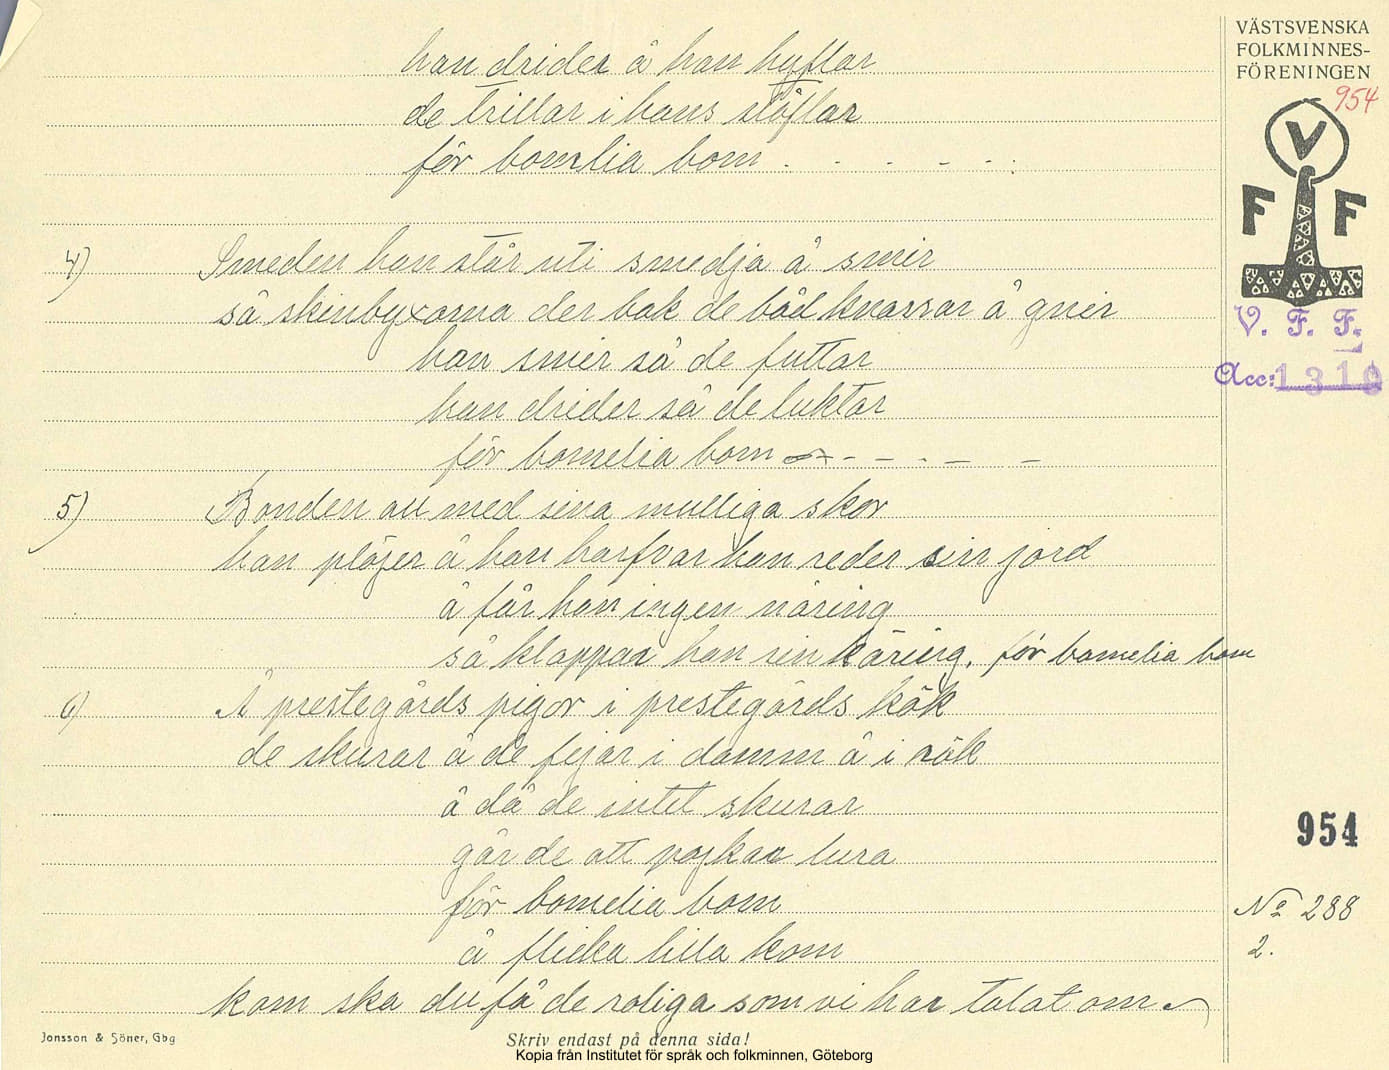 VÄSTSVENSKA
FOLKMINNES-
FÖRENINGEN
954
V
F F
V. F. F.
Acc: 1310
han drider å han hyflar
de trillar i hans stöflar
för bomelia bom . - . - . - . :
4) Smeden han står uti smedja å smir
så skinbyxorna der bak de båd knarrar å gnir
han smir så de futtar
han drider så de luktar
för bomelia bom - - - - -
5) Bonden au med sina mulliga skor
han plöjer å han harfvar han reder sin jord
å får han ingen näring
så klappar han sin käring, för bomelia bom
6) Å prestegårds pigor i prestegårds kök
de skurar å de fejar i damm å i rök
å då de intet skurar
går de att pojkar lura
för bomelia bom
å flicka lilla kom
kom ska du få de roliga som vi har talat om
954
No 288
2.
Jonsson & Söner, Gbg
Skriv endast på denna sida!
Kopia från Institutet för språk och folkminnen, Göteborg